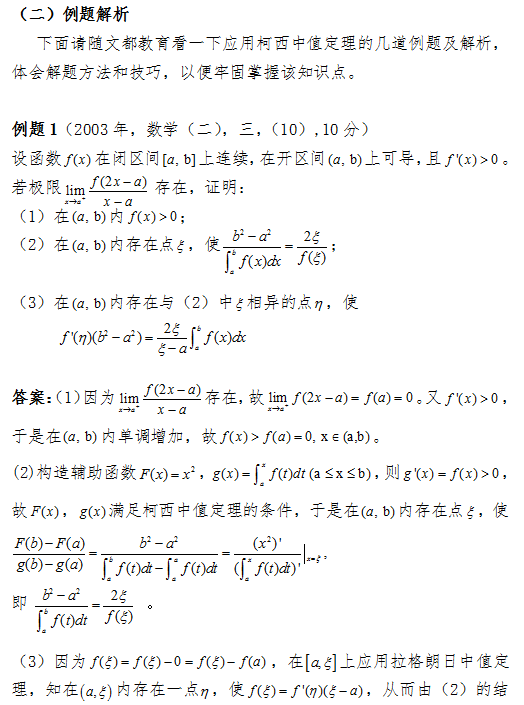 （二）例题解析
下面请随文都教育看一下应用柯西中值定理的几道例题及解析，
体会解题方法和技巧，以便牢固掌握该知识点。
例题1（2003年，数学（二），三，（10），10分）
设函数 f(x) 在闭区间[a, b]上连续，在开区间(a, b)上可导，且 f'(x)>0。
若极限 lim_{x→a⁺} f(2x−a)/(x−a) 存在，证明：
（1）在(a, b)内 f(x)>0；
（2）在(a, b)内存在点ξ，使 (b²−a²)/∫_a^b f(x)dx = 2ξ/f(ξ)；
（3）在(a, b)内存在与（2）中ξ相异的点η，使
f'(η)(b²−a²) = 2ξ/(ξ−a) ∫_a^b f(x)dx
答案：（1）因为 lim_{x→a⁺} f(2x−a)/(x−a) 存在，故 lim_{x→a⁺} f(2x−a)= f(a)=0。又 f'(x)>0，
于是在(a, b)内单调增加，故 f(x)> f(a)=0, x∈(a,b)。
(2)构造辅助函数 F(x)=x²，g(x)=∫_a^x f(t)dt (a≤x≤b)，则 g'(x)= f(x)>0，
故 F(x)，g(x)满足柯西中值定理的条件，于是在(a, b)内存在点ξ，使
(F(b)−F(a))/(g(b)−g(a)) = (b²−a²)/(∫_a^b f(t)dt−∫_a^a f(t)dt) = (x²)'/(∫_a^x f(t)dt)' |_{x=ξ}，
即 (b²−a²)/∫_a^b f(t)dt = 2ξ/f(ξ) 。
（3）因为 f(ξ)= f(ξ)−0= f(ξ)− f(a)，在[a,ξ]上应用拉格朗日中值定
理，知在(a,ξ)内存在一点η，使 f(ξ)= f'(η)(ξ−a)，从而由（2）的结